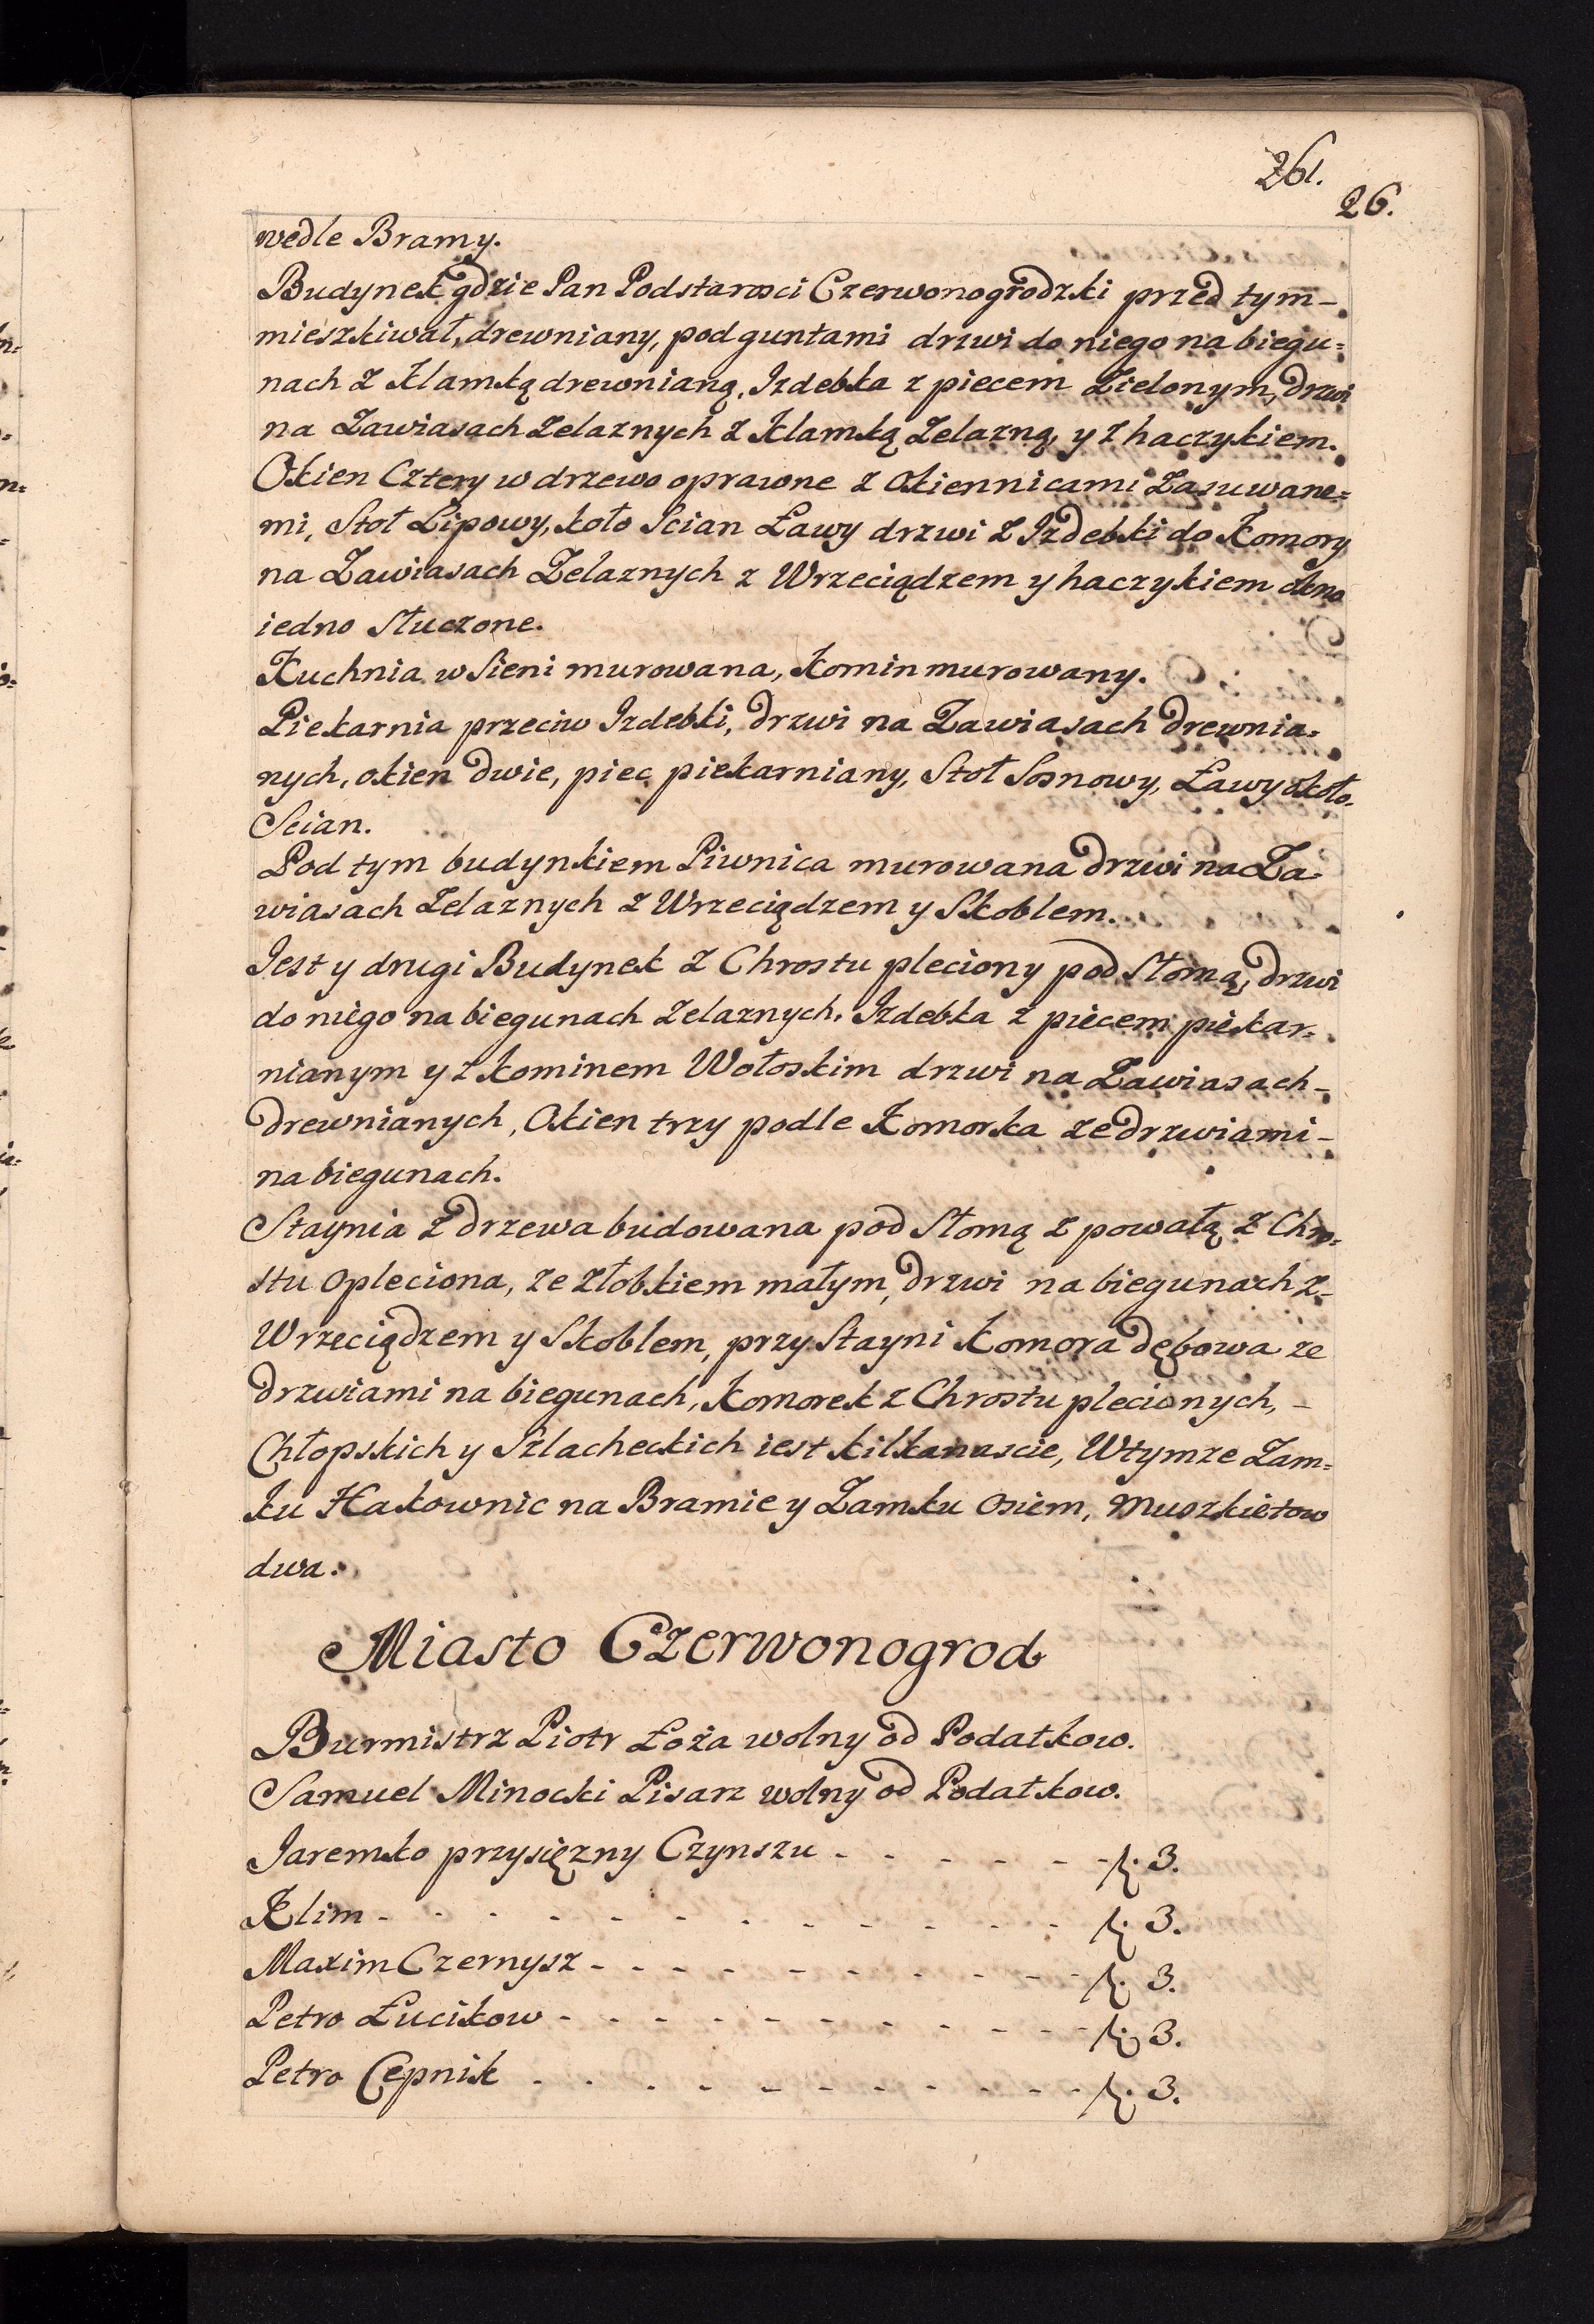 261.
26.
wedle Bramy.
Budynek gdzie Pan Podstarosci Czerwonogrodzki przed tym-
mieszkiwał, drewniany, pod guntami drzwi do niego na biegu=
nach z klamką drewnianą, Izdebka z piecem Zielonym, drzwi
na Zawiasach zelaznych z klamką Zelazną, y z haczykiem.
Okien Cztery w drzewo oprawne z Okiennicami Zasuwane=
mi, Stoł Lipowy, koło Scian Ławy drzwi z Izdebki do Komory
na Zawiasach Zelaznych z Wrzeciądzem y haczykiem okno
iedno stuczone.
Kuchnia w Sieni murowana, Komin murowany.
Piekarnia przeciw Izdebki, drzwi na Zawiasach drewnia=
nych, okien dwie, piec piekarniany, Stoł Sosnowy, Ławy około
Scian.
Pod tym budynkiem Piwnica murowana drzwi na Za=
wiasach zelaznych z Wrzeciądzem y Skoblem.
Jest y drugi Budynek z Chrostu pleciony pod Słomą, drzwi
do niego na biegunach zelaznych. Izdebka z piecem piekar=
nianym y z kominem Wołoskim drzwi na Zawiasach-
drewnianych, Okien trzy podle Komorka ze drzwiami-
na biegunach.
Staynia z drzewa budowana pod Słomą z powałą z Chro=
stu opleciona, ze złobkiem małym, drzwi na biegunach z-
Wrzeciądzem y Skoblem, przy Stayni komora dębowa ze
drzwiami na biegunach, komorek z Chrostu plecionych, -
Chłopskich y Szlacheckich iest kilkanascie, W tymze Zam=
ku Hakownic na Bramie y Zamku osiem, muszkietow
dwa.
Miasto Czerwonogrod
Burmistrz Piotr Łoża wolny od Podatkow.
Samuel Minocki Pisarz wolny od Podatkow.
Jaremko przysięzny Czynszu - - - - - - f. 3.
Klim - - - - - - - - - - - - f. 3.
Maxim Czernysz - - - - - - - - - f. 3.
Petro Łucikow - - - - - - - - - - f. 3.
Petro Cepnik - - - - - - - - - - f. 3.